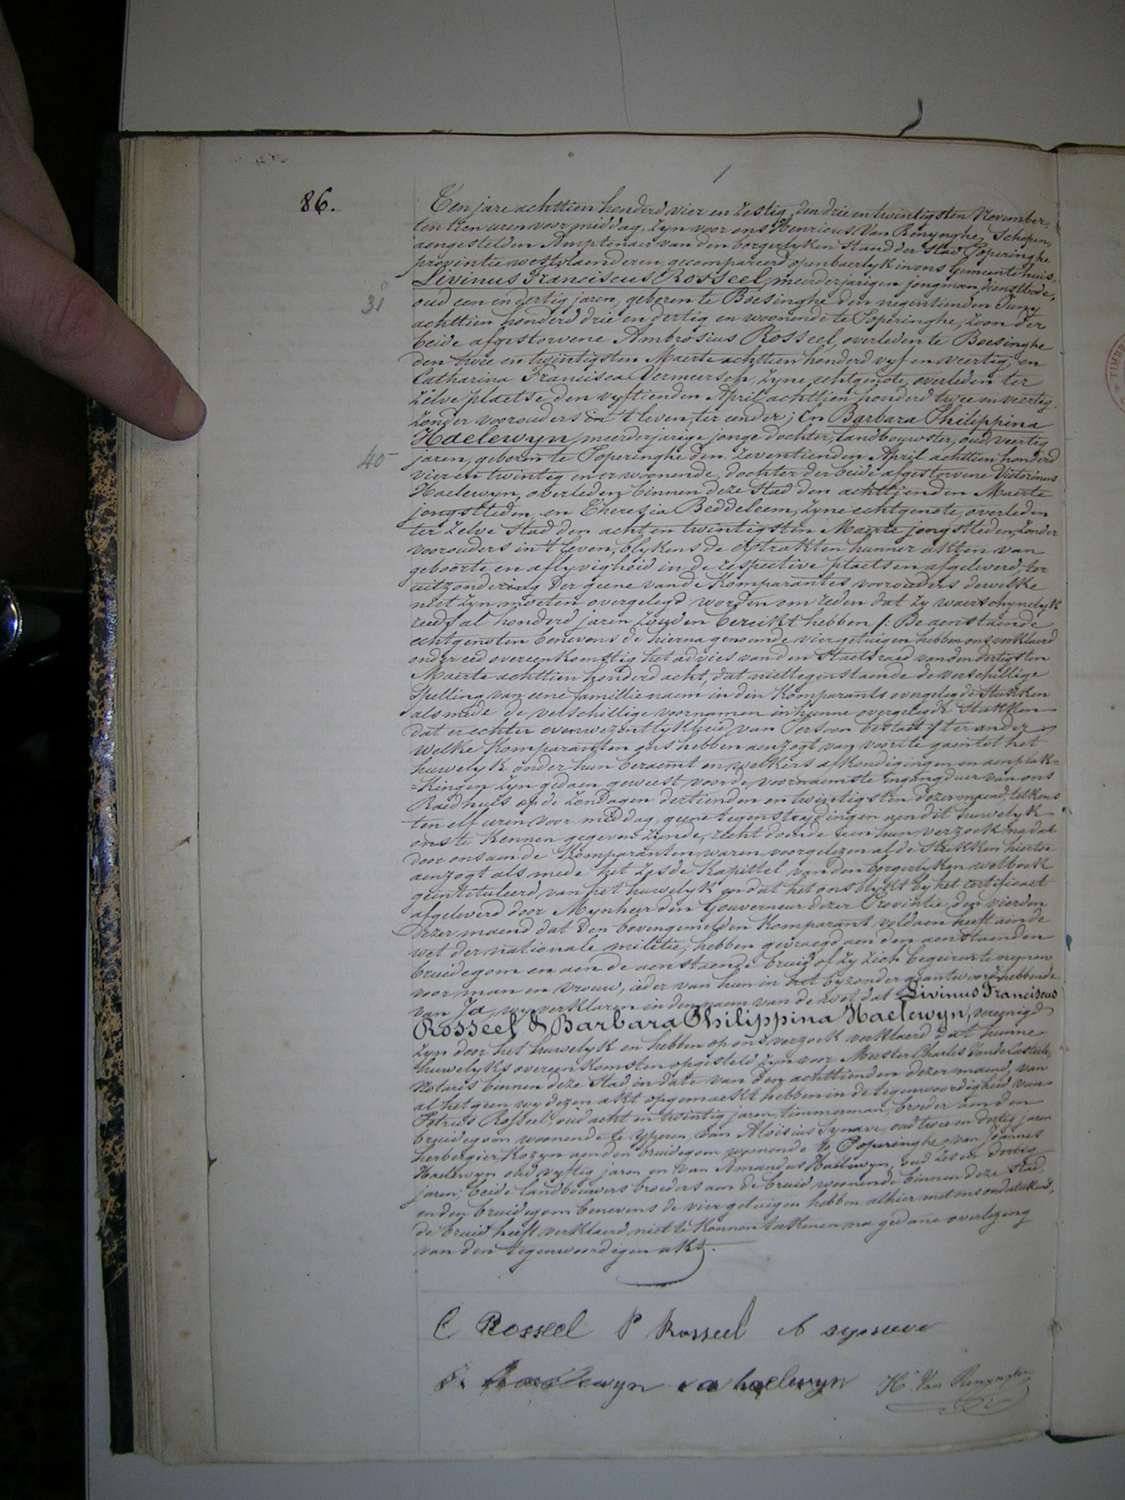 86.
Ten jare achttien honderd vier en zestig, den drie en twintigsten November,
ten tien uren voor middag, zyn voor ons Henricus Van Renynghe, Schepen,
aengestelden Amptenaer van den borgerlyken Stand der stad Poperinghe
provintie westvlaenderen gecompareerd openbaerlyk in ons Gemeentehuis,
Livinus Franciscus Rosseel, meerderjarigen jongman, dienstbode,
31
oud een en dertig jaren, geboren te Boesinghe den negentienden Juny
achttien honderd drie en dertig en woonende te Poperinghe, zoon der
beide afgestorvene Ambrosius Rosseel, overleden te Boesinghe
den twee en twintigsten Maerte achttien honderd vyf en veertig, en
Catharina Francisca Vermeersch, zyne echtgenote, overleden ter
zelve plaetse den vyftienden April achttien honderd twee en veertig,
zonder voorouders in 't leven, ter eender; En Barbara Philippina
Haelewyn, meerderjarige jonge dochter, landbouwster, oud veertig
40
jaren, geboren te Poperinghe den zeventienden April achttien honderd
vier en twintig en er woonende, dochter der beide afgestorvene Victorinus
Haelewyn, overleden binnen deze Stad den achttienden Maerte
jongstleden, en Theresia Beddeleem, zyne echtgenote, overleden
ter zelve Stad den acht en twintigsten Maerte jongstleden, zonder
voorouders in 't leven, blykens de extrakten hunner akten van
geboorte en aflyvigheid in de respective plaetsen afgeleverd, ter
uitzondering der geene van de Komparantes voorouders dewelke
niet zyn moeten overgelegd worden om reden dat zy waerschynelyk
reeds al honderd jaren zouden bereikt hebben /. De aenstaende
echtgenoten benevens de hierna genoemde vier getuigen hebben ons verklaerd
onder eed overeenkomstig het advies van den Staetsraed van den dertigsten
Maerte achttien honderd acht, dat niettegenstaende de verschillige
spelling van eene famillienaem in den Komparants overgelegde Stukken
alsmede de verschillige voornamen in hunne overgelegde Stukken
dat er echter overwezentlykheid van Persoon bestaet / ter ander
welke Komparanten ons hebben aenzogt van voort te gaen tot het
huwelyk onder hun beraemt en welkens afkondigingen en aenplak-
-kingen zyn gedaen geweest voor de voornaemste ingangdeur van ons
Raedhuis op de zondagen dertienden en twintigsten dezer maend, telkens
ten elf uren voor middag, geene tegenstrydingen aen dit huwelyk
ons te kennen gegeven zynde, recht doende aen hun verzoek, na dat
door ons aen de Komparanten waren voorgelezen al de Stukken hierto
aenzogt als mede het zesde Kapittel van den borgerlyken wetboek
geintituleerd van het huwelyk en dat het ons blykt by het certificaet
afgeleverd door Mynheer den Gouverneur dezer Provintie, den vierden
dezer maend dat den bovengemelden Komparant voldaen heeft aen de
wet der nationale militie, hebben gevraegd aen den aenstaenden
bruidegom en aen de aenstaende bruid of zy zich begeeren te nemen
voor man en vrouw, ieder van hun in het byzonder geantwoord hebbende
van Ja, wy verklaren in den naem van de wet dat Livinus Franciscus
Rosseel & Barbara Philippina Haelewyn, vereenigd
zyn door het huwelyk en hebben op ons verzoek verklaerd dat hunne
huwelyks overeenkomsten opgesteld zyn voor Meester Charles Vande Casteele,
Notaris binnen deze Stad in date van den achttienden dezer maend, van
al het geen wy dezen akt opgemaekt hebben in de tegenwoordigheid van
Petrus Rosseel, oud acht en twintig jaren, timmerman, broeder aen den
bruidegom woonende te Yperen, van Aloisius Synave, oud twee en dertig jaren
herbergier, Kozyn aen den bruidegom woonende te Poperinghe, van Joannes
Haelewyn oud vyftig jaren en van Amandus Haelewyn, oud zes en dertig
jaren, beide landbouwers broeders aen de bruid woonende binnen deze Stad,
en den bruidegom benevens de vier getuigen hebben alhier met ons onderteekend,
de bruid heeft verklaerd niet te konnen teekenen na gedane overlezing
van den tegenwoordigen akt.
L Rosseel P Rosseel A synave
J. Haelewyn a haelewyn Hri Van Renynghe